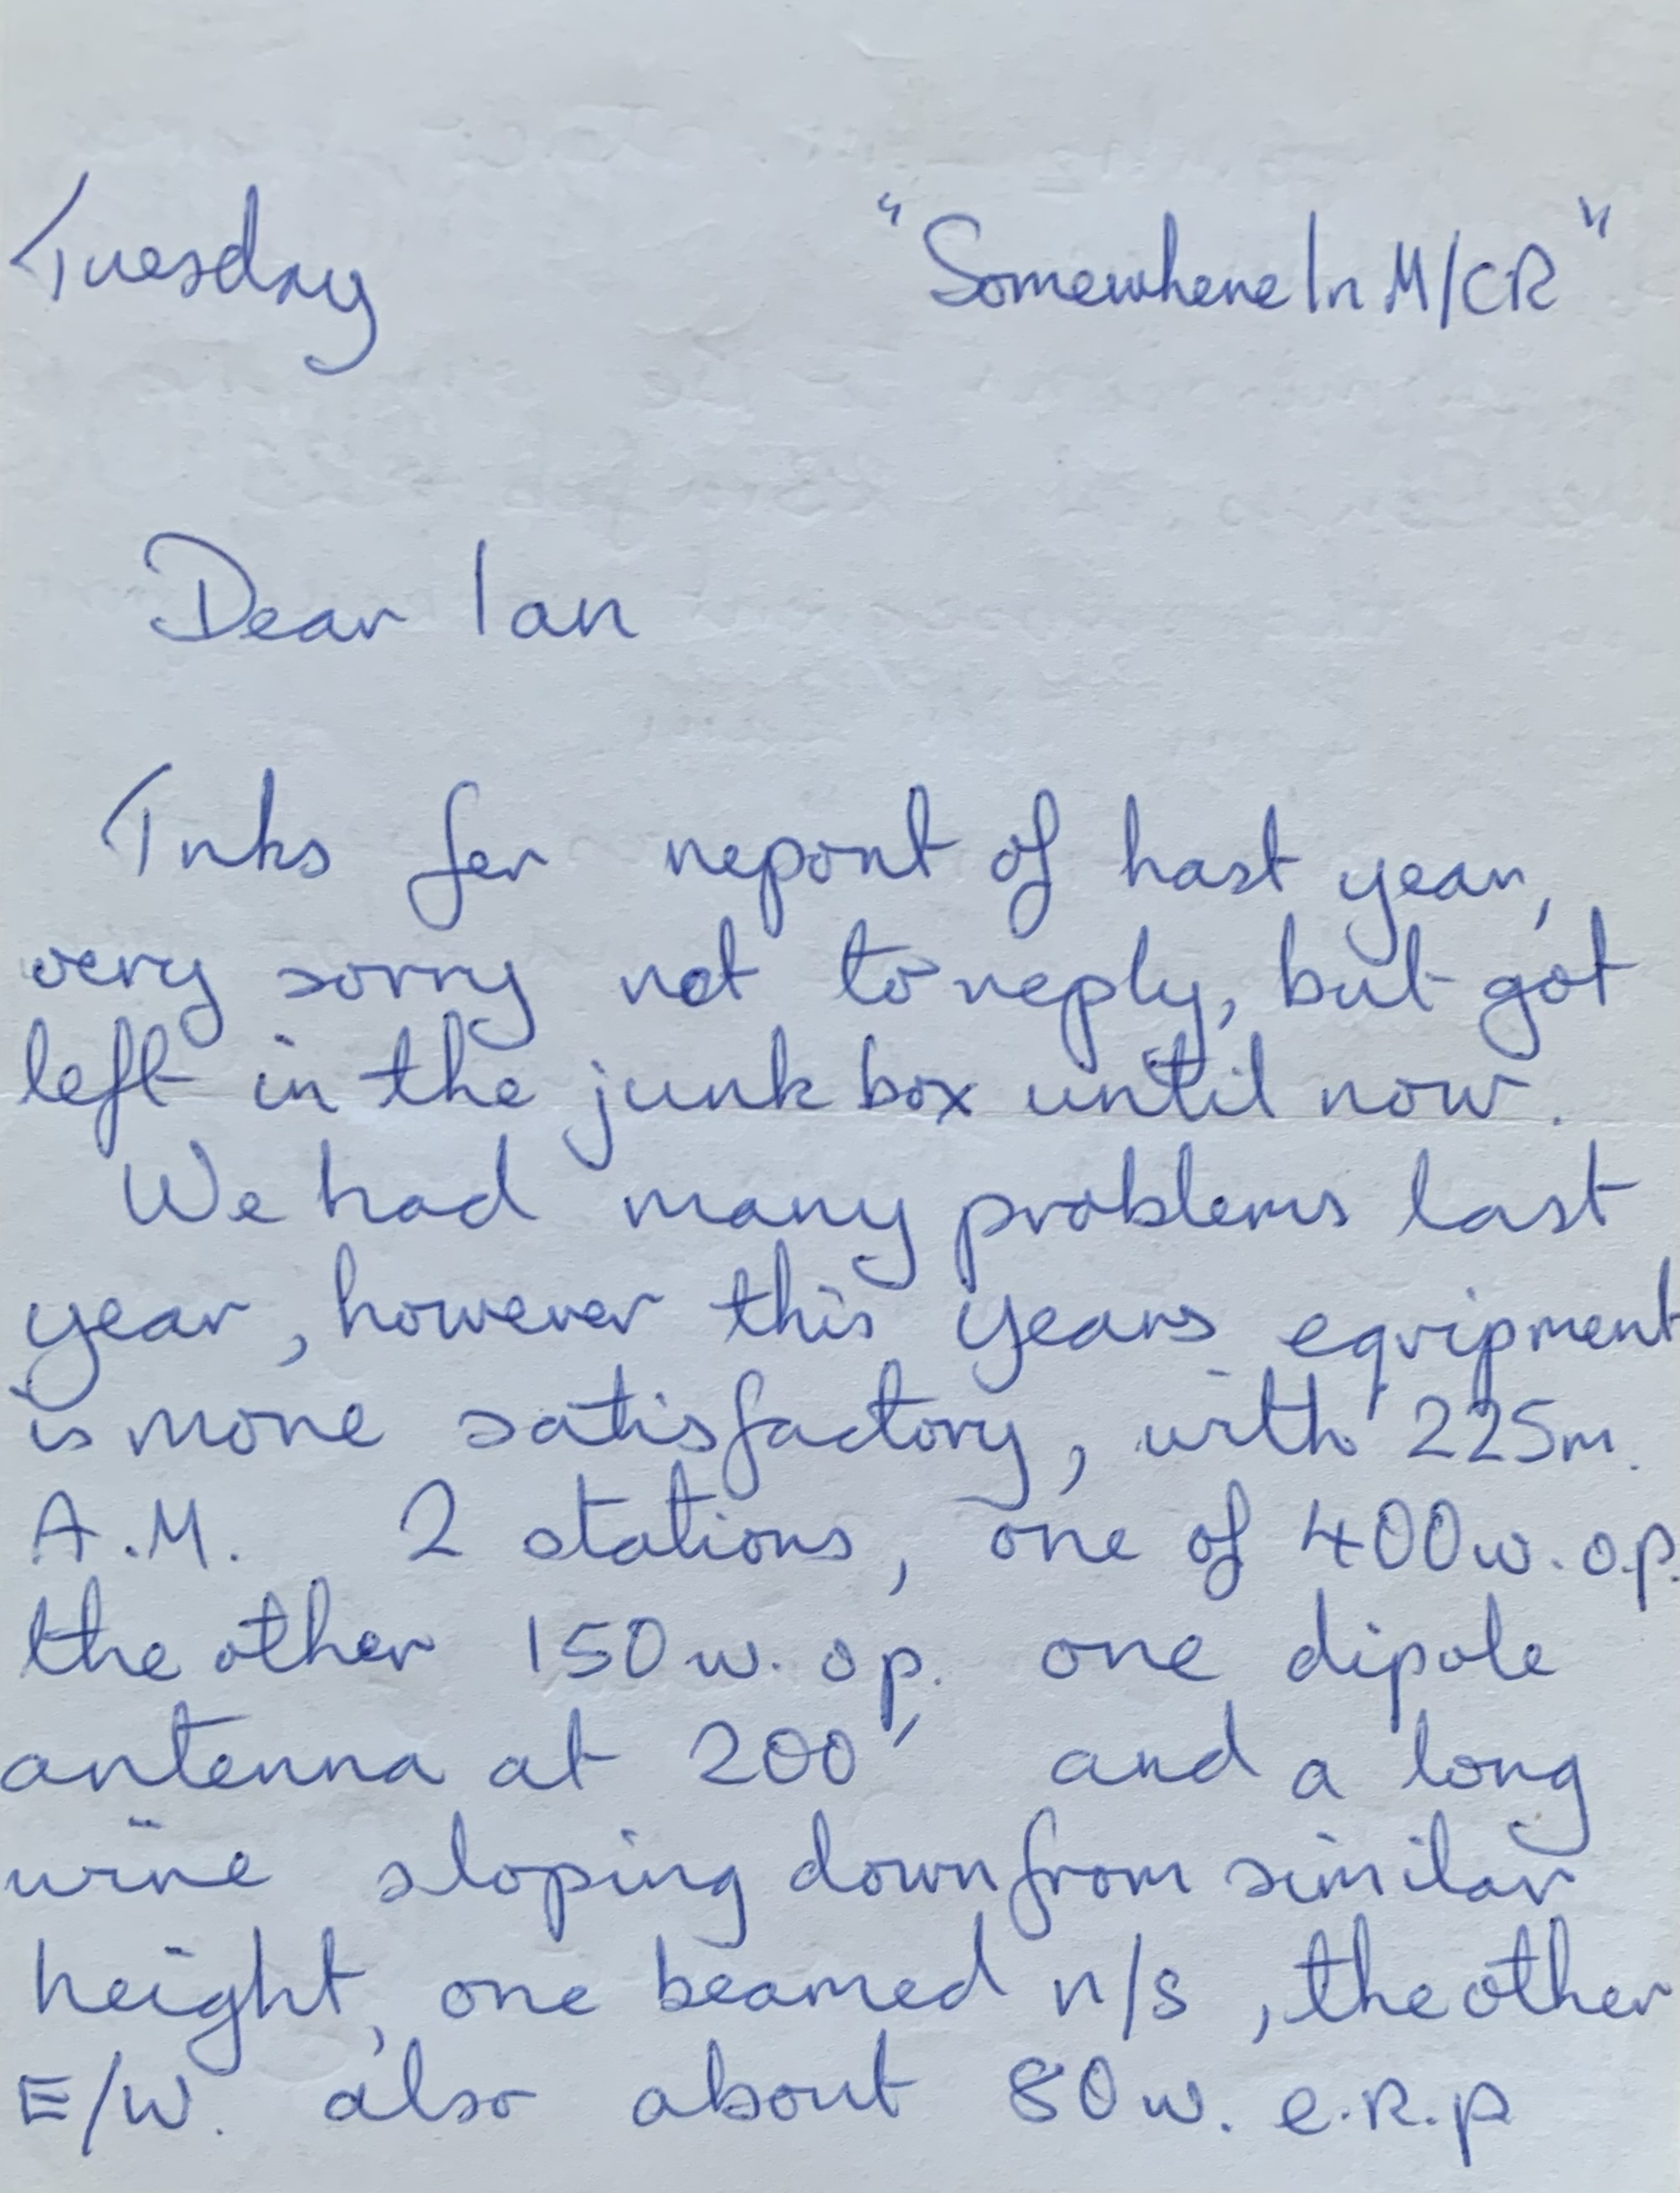 Tuesday "Somewhere In M/CR"
Dear Ian
Tnks fer report of last year,
very sorry not to reply, but got
left in the junk box until now.
We had many problems last
year, however this years equipment
is more satisfactory, with 225m.
A.M. 2 stations, one of 400w. o.p.
the other 150w. o.p. one dipole
antenna at 200' and a long
wire sloping down from similar
height, one beamed n/s, the other
E/W. also about 80w. e.R.p